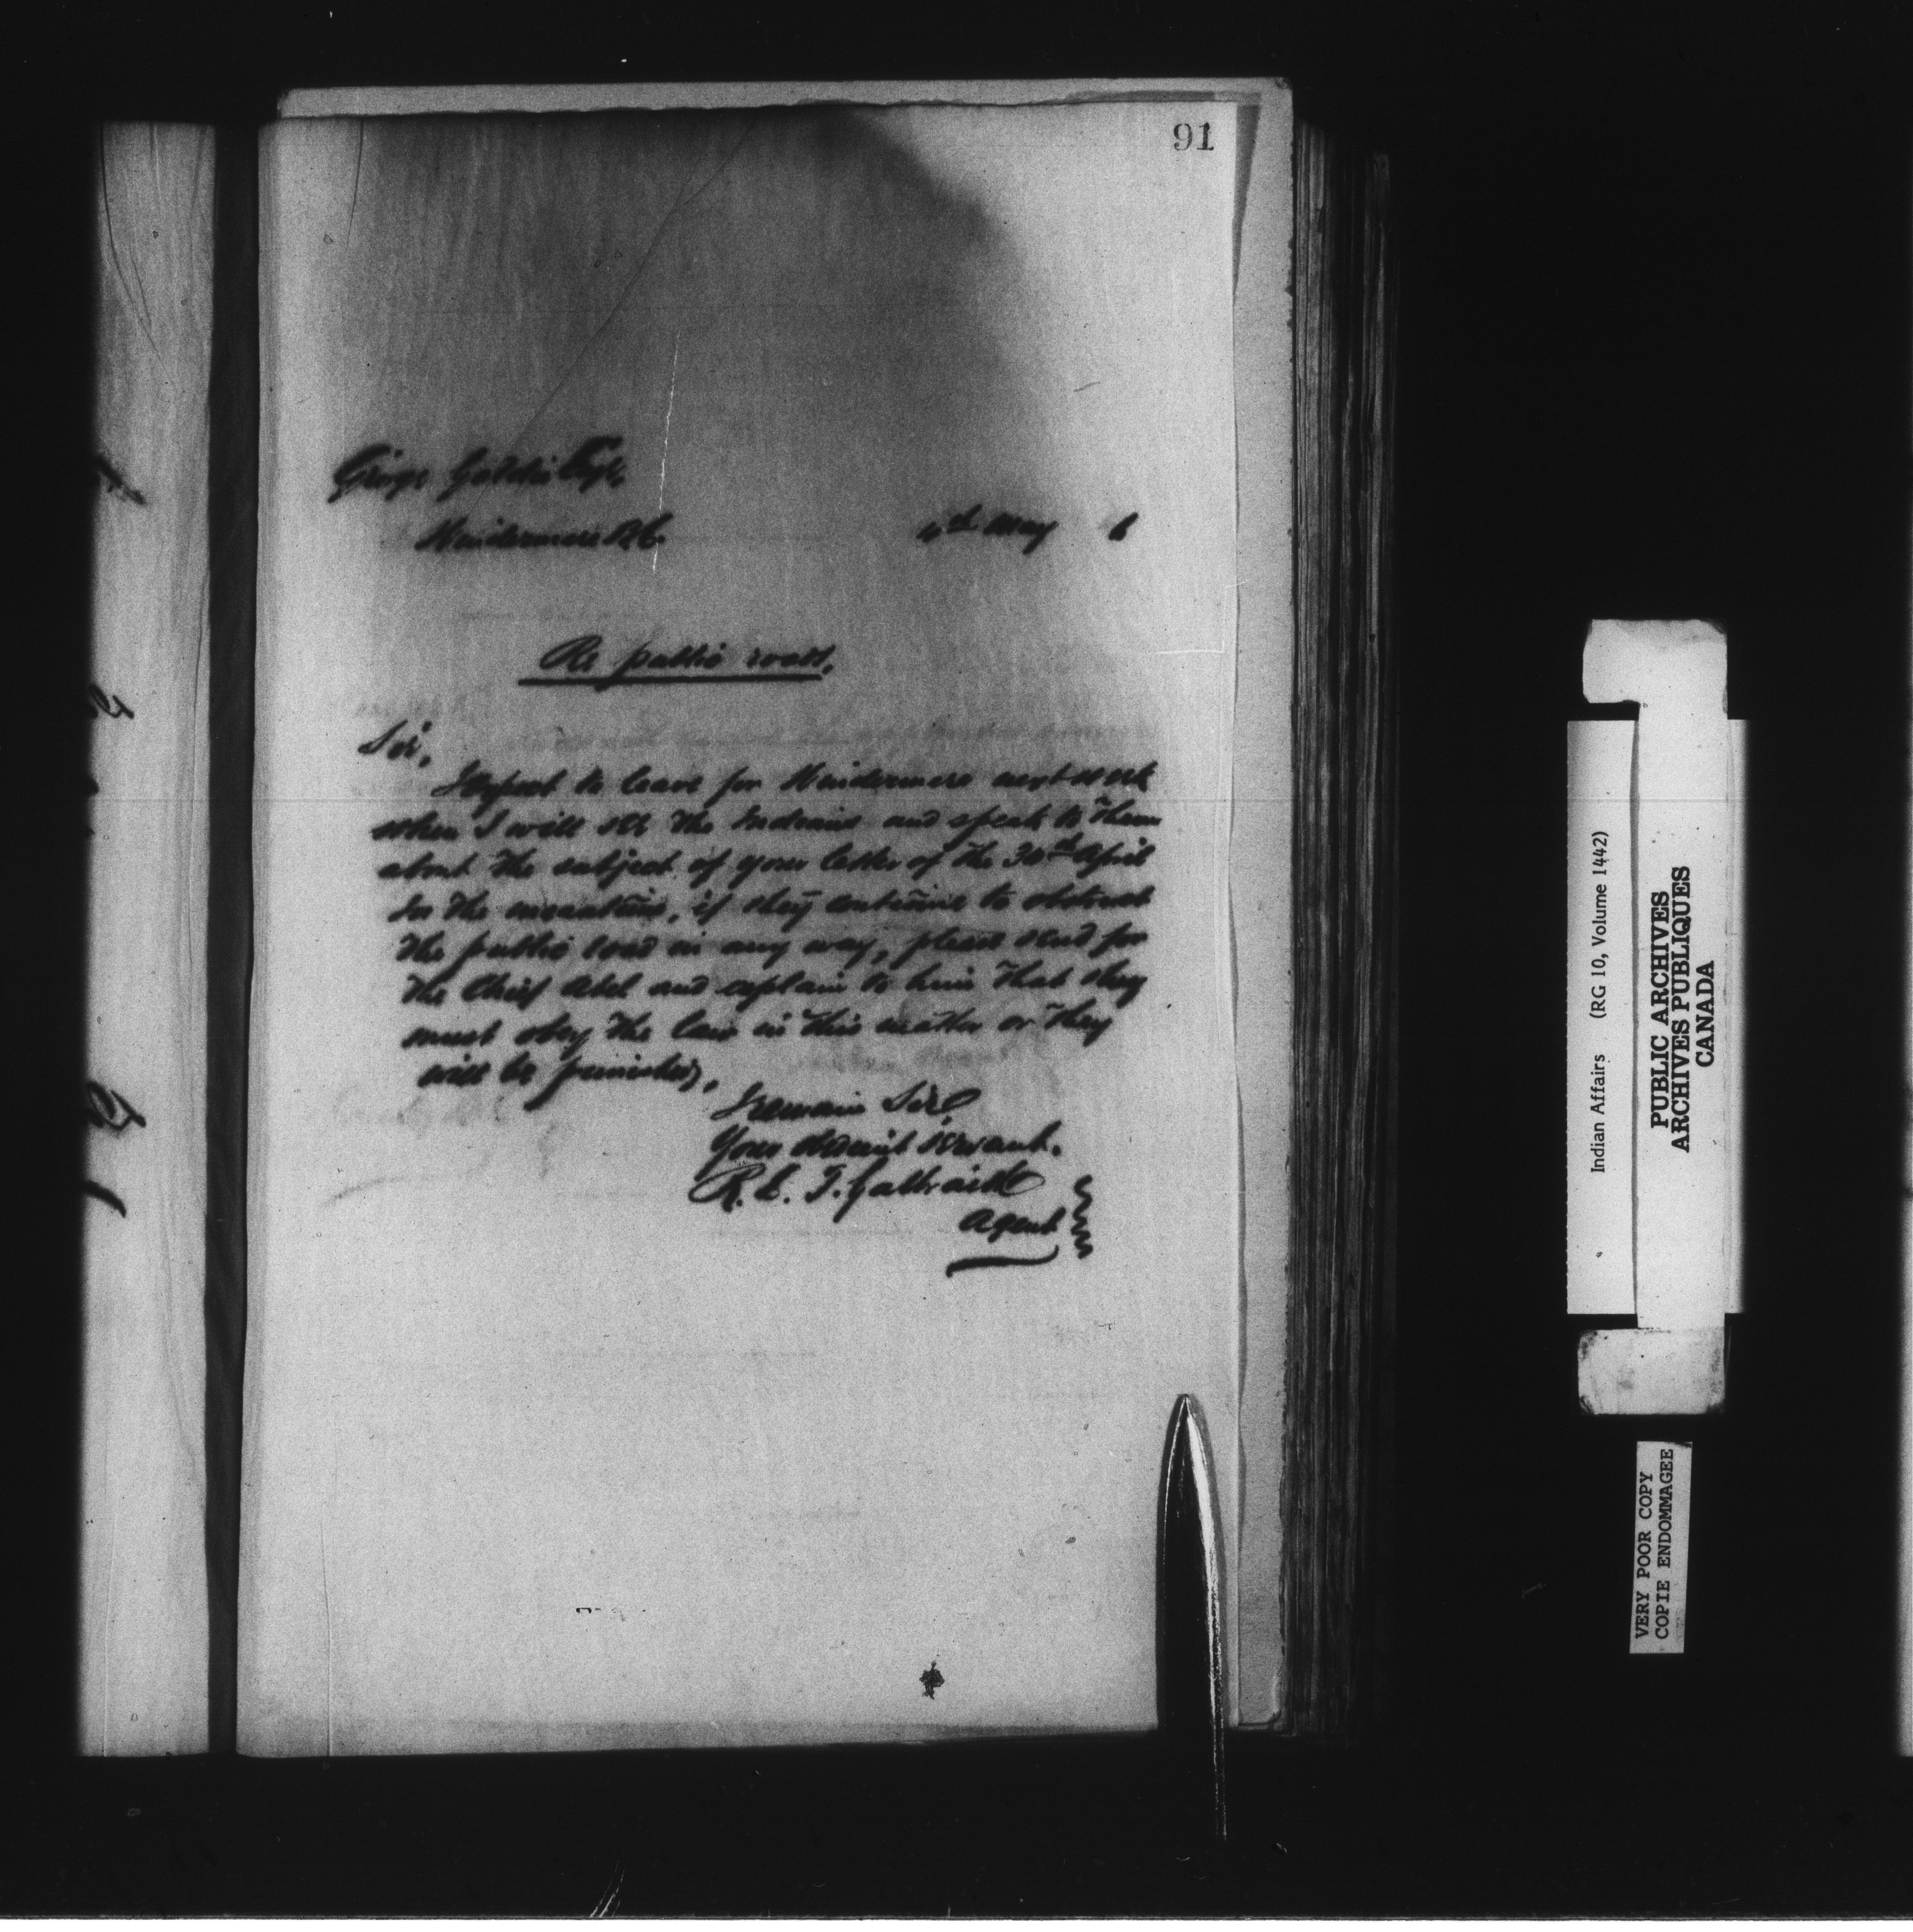 91
George Goldie Esqr.
Windermere B.C. 4th May 6
Re public road.
Sir,
I expect to leave for Windermere next week
when I will see the Indians and speak to them
about the subject of your letter of the 30th April
In the meantime, if they continue to obstruct
the public road in any way, please send for
the Chief Abel and explain to him that they
must obey the law in this matter or they
will be punished,
I remain Sir
Your obedient servant.
R. L. T. Galbraith
Agent
Indian Affairs (RG 10, Volume 1442)
PUBLIC ARCHIVES
ARCHIVES PUBLIQUES
CANADA
VERY POOR COPY
COPIE ENDOMMAGEE